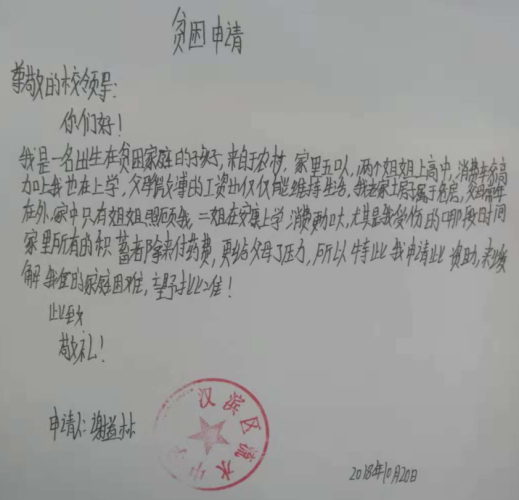 贫困申请
尊敬的校领导:
你们好!
我是一名出生在贫困家庭的孩子,来自农村,家里五口人,两个姐姐上高中,消费较高
加上我也在上学,父母微薄的工资也仅仅能维持生活,我老家土房子属于危房,父母常年
在外,家中只有姐姐照顾我,二姐在安康上学,消费更加大,尤其是我受伤的哪段时间
家里所有的积蓄都拿来付药费,更给父母了压力,所以特此我申请此资助,来缓
解我徂的家庭困难,望予批准!
此致
敬礼!
申请人:谢益林
汉滨区流水
2018年10月20日